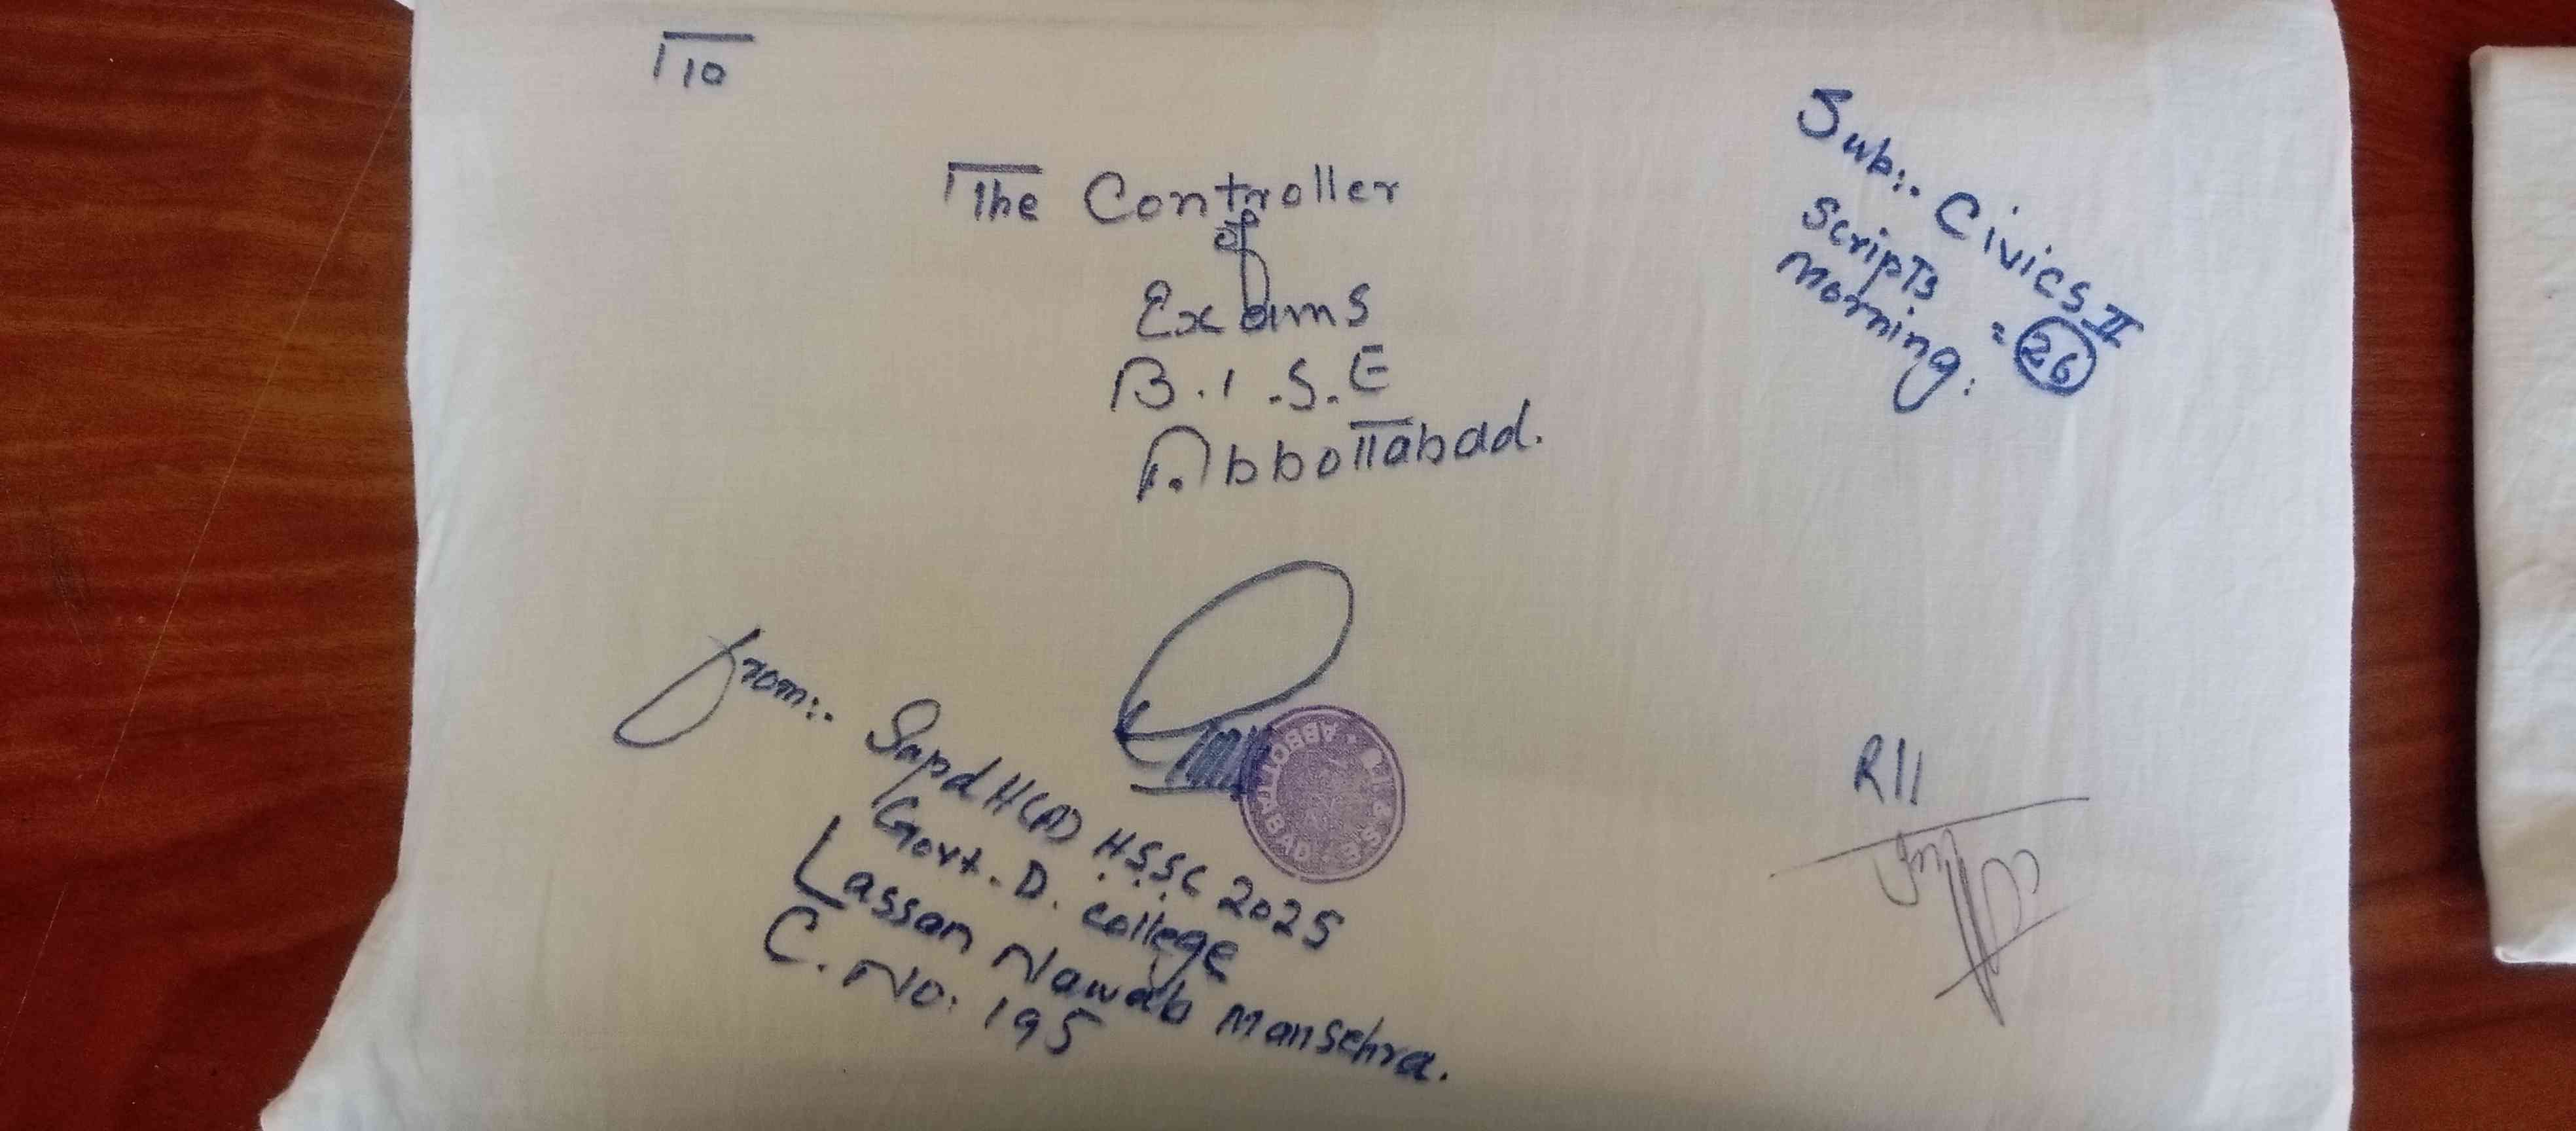 To
The Controller
of
Exams
B.I.S.E
Abbottabad.
Sub:- Civics II
Scripts = 26
Morning:
From:- Supd H(A) H.S.S.C 2025
Govt. D. College
Lassan Nawab Mansehra.
C. No: 195
B.I.& S.E. ABBOTTABAD
R11